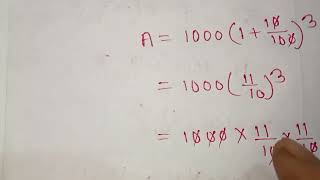 A = 1000 (1 + 10/100)^3
= 1000 (11/10)^3
= 1000 × 11/10 × 11/10